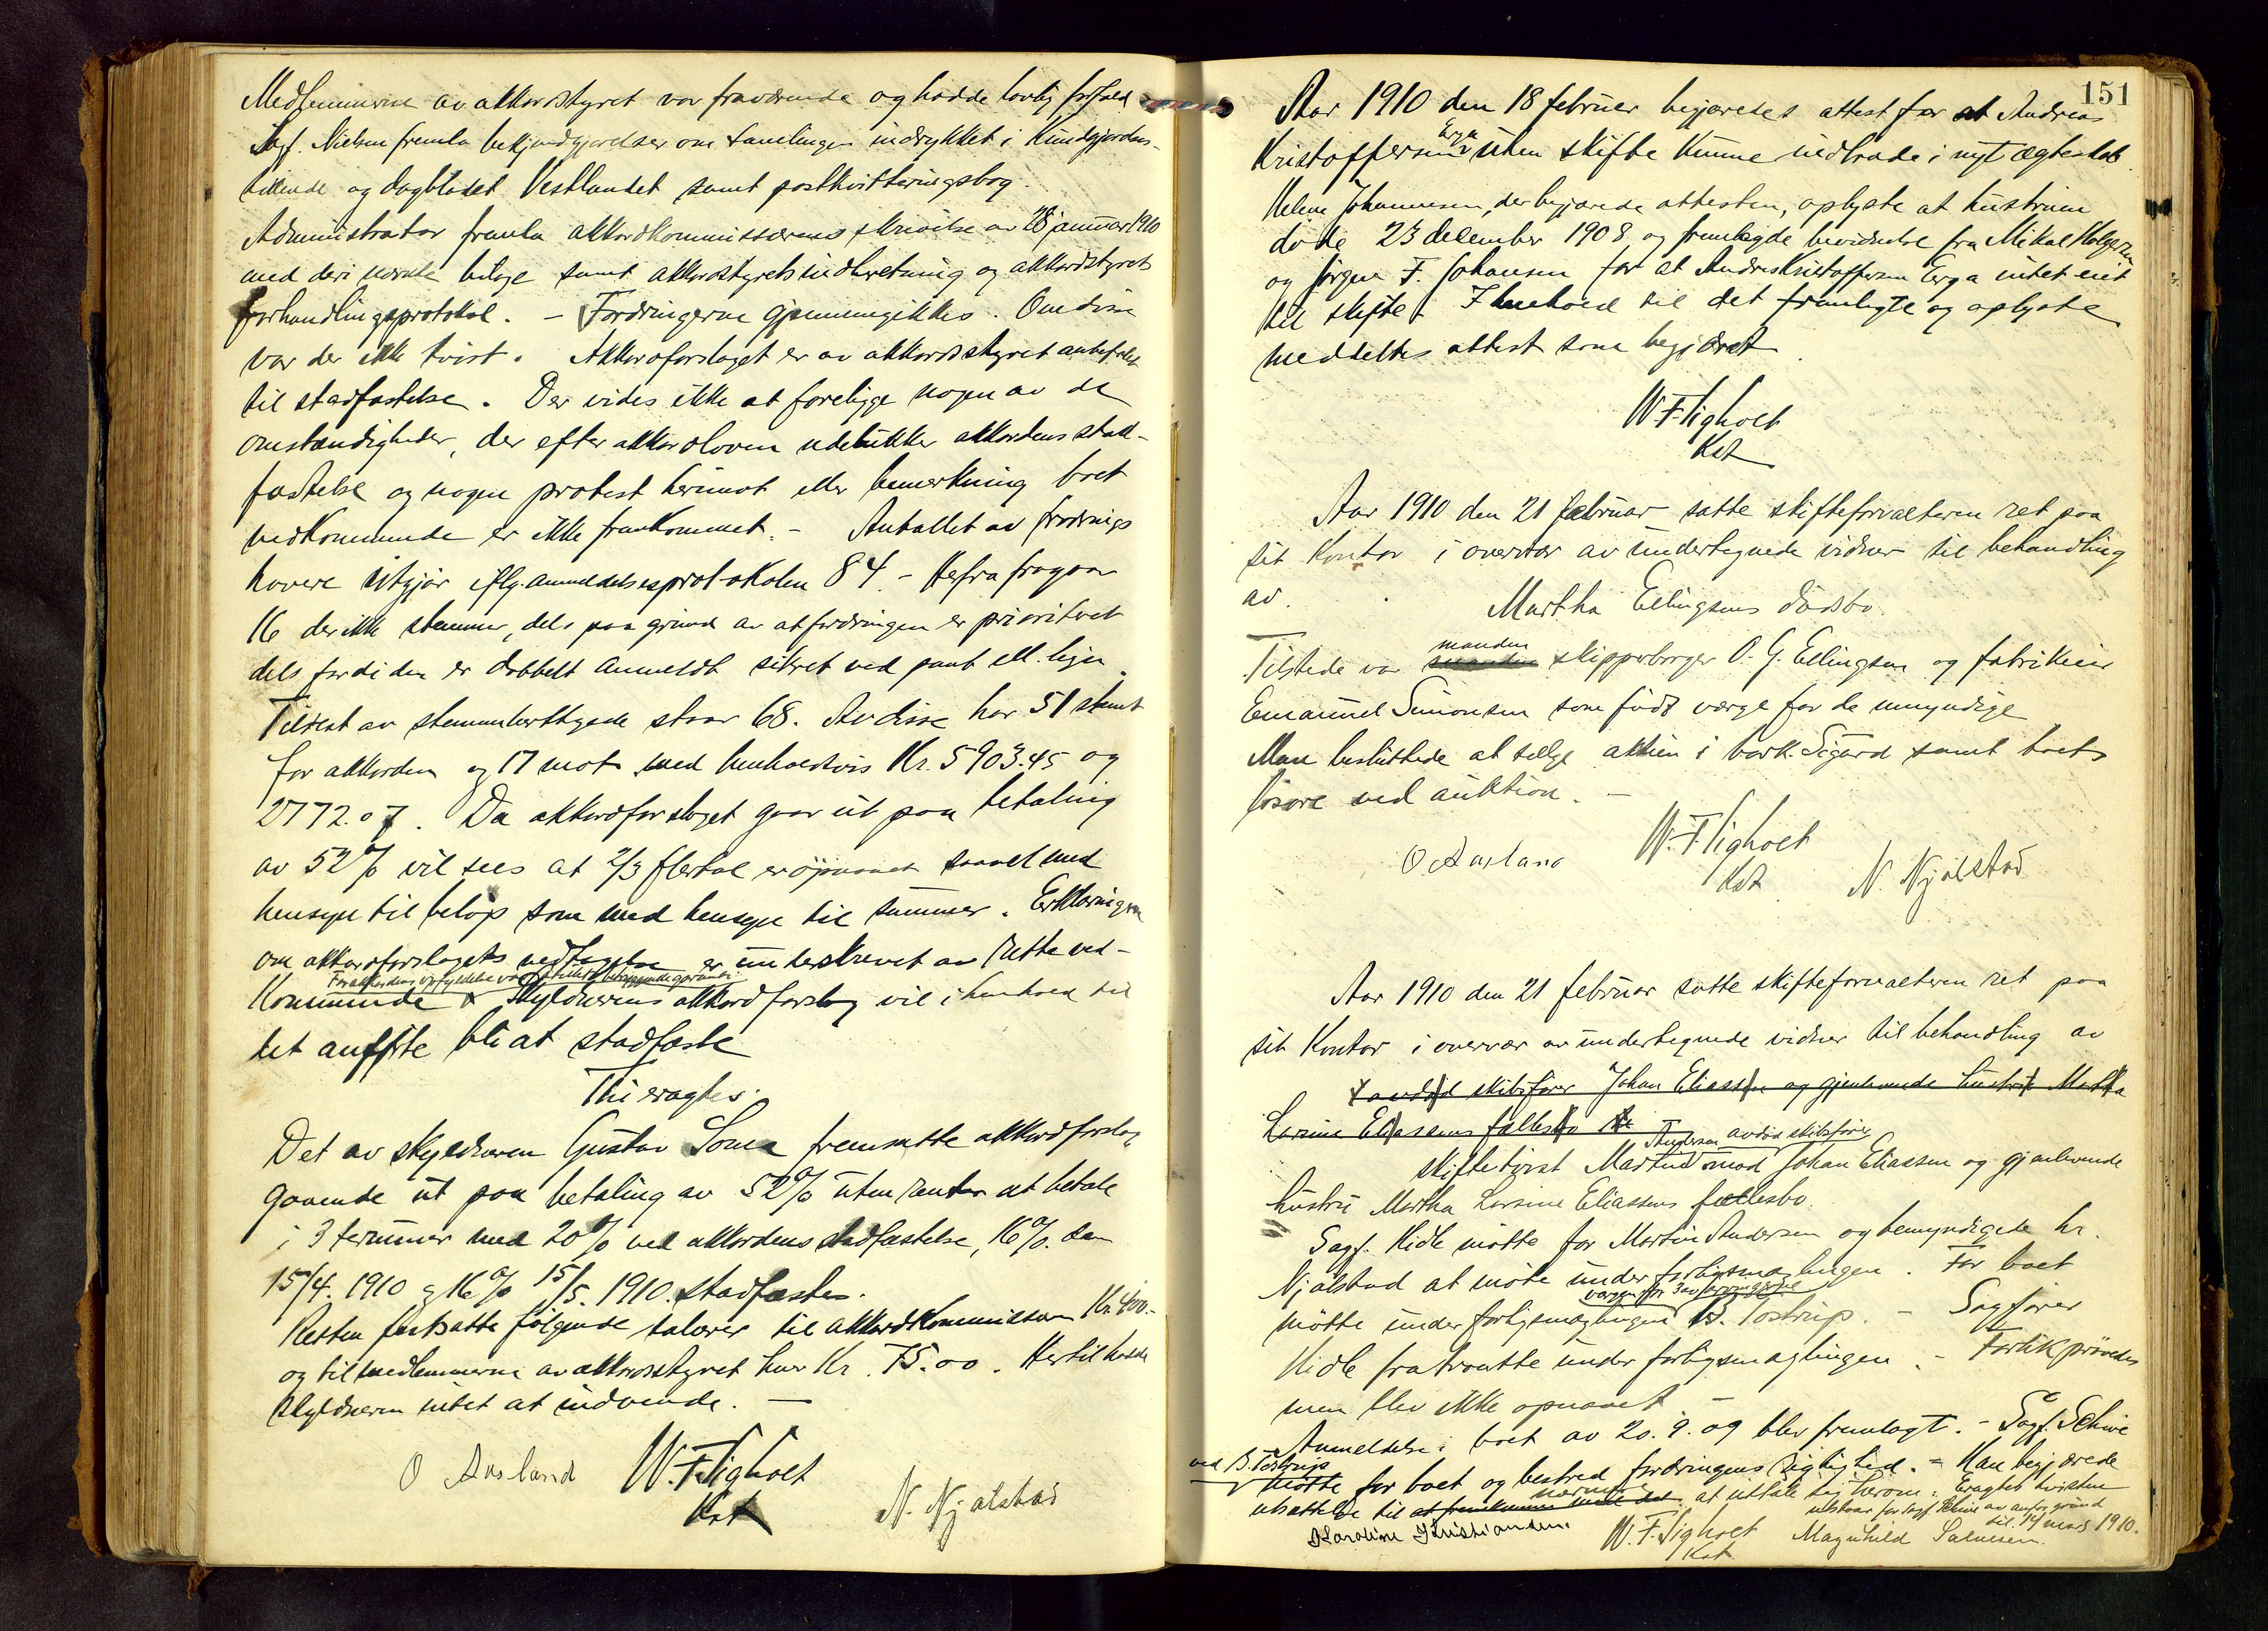 Medlemmerne av akkordstyret var fraværende og hadde lovlig forfald
Sagf. Nielsen fremla bekjendgjørelser om samlingen indrykket i Kundgjørelses-
tidende og dagbladet Vestlandet samt postkvitteringsbog.
Administrator fremla akkordkommissærens skrivelse av 28 januar 1910
med deri nævnte bilage samt akkordstyrets indberetning og akkordstyrets
forhandlingsprotokol. - Fordringerne gjennemgikkes. Om disse
var der ikke tvist. Akkordforslaget er av akkordstyret anbefalet
til stadfæstelse. Der vides ikke at foreligge nogen av de
omstændigheder, der efter akkordloven udelukker akkordens stad-
fæstelse og nogen protest herimot eller bemerkning boet
vedkommende er ikke fremkommet. - Antallet av fordrings
havere utgjør iflg. anmeldelsesprotokolen 84 - Herfra fragaar
16 der ikke stemmer, dels paa grund av at fordringen er prioritert
dels fordi den er dobbelt anmeldt sikret ved pant ell. lign.
Tilrest av stemmeberettigede staar 68. Av disse har 51 stemt
for akkorden og 17 mot med henholdsvis Kr. 5903.45 og
2772.07. Da akkordforslaget gaar ut paa betaling
av 52% vil sees at 2/3 flertal er opnaaet saavel med
hensyn til beløp som med hensyn til summer. Erklæringen
om akkordforslagets vedtagelse er underskrevet av rette ved-
For akkordens opfyldelse var stillet betryggende garanti.
kommende x Skyldnerens akkordforslag vil i henhold til
det anførte bli at stadfæste
Thi eragtes:
Det av skyldneren Gustav Soma fremsatte akkordforslag
gaaende ut paa betaling av 52% uten renter at betale
i 3 terminer med 20% ved akkordens stadfæstelse, 16% den
15/4. 1910 og 16% 15/5. 1910. stadfæstes.
Retten fastsatte følgende salærer til akkordkommissæren Kr. 400.-
og til medlemmerne av akkordstyret hver Kr. 75.00. Hertil hadde
skyldneren intet at indvende. -
O Aasland W.F. Sigholt N. Njølstad
Kst
151
Aar 1910 den 18 februar begjæredes attest for at Andreas
Erga
Kristoffersen uten skifte kunne indtræde i nyt ægteskab.
Helene Johannesen, der begjærede attesten, oplyste at hustruen
døde 23 december 1908 og fremlagde bevidnelse fra Mikal Holgersen
og Jørgen F. Johansen for at Andreas Kristoffersen Erga intet eiet
til skifte. I henhold til det fremlagte og oplyste
meddeltes attest som begjæret.
W.F. Sigholt
Kst
Aar 1910 den 21 februar satte skifteforvalteren ret paa
sit kontor i overvær av undertegnede vidner til behandling
av
Martha Ellingsens dødsbo.
manden
Tilstede var skipperborger O. G. Ellingsen og fabrikeier
Emanuel Simonsen som født værge for de umyndige
Man besluttede at sælge aktien i bark Sigurd samt boets
løsøre ved auktion. -
W.F. Sigholt
O Aasland Kst N. Njølstad
Aar 1910 den 21 februar satte skifteforvalteren ret paa
sit kontor i overvær av undertegnede vidner til behandling av
avdød skibsfører Johan Eliassen og gjenlevende hustru Martha
Larsine Eliassens fællesbo
Andersen avdød skibsfører
skiftetvist Martin mod Johan Eliassen og gjenlevende
hustru Martha Larsine Eliassens fællesbo.
Sagf. Kidle møtte for Martin Andersen og bemyndigede hr.
Njølstad at møte under forligsmæglingen. For boet
værgen for 3 av arvingerne
møtte under forligsmæglingen B. Tostrup. - Sagfører
Kidle fratraatte under forligsmæglingen. - Forlik prøvedes
men blev ikke opnaaet -
Anmeldelse i boet av 20.9.09 blev fremlagt. - Sagf. Schive
ved B. Tostrup
møtte for boet og bestred fordringens rigtighed. - Han begjærede
nærmere
utsættelse til at uttale sig herom. Eragtet tvisten
utstaar for sagf. Schive av anførte grund
til 14 mars 1910.
Karoline Kristiansen. W.F. Sigholt Magnhild Salvesen.
Kst.